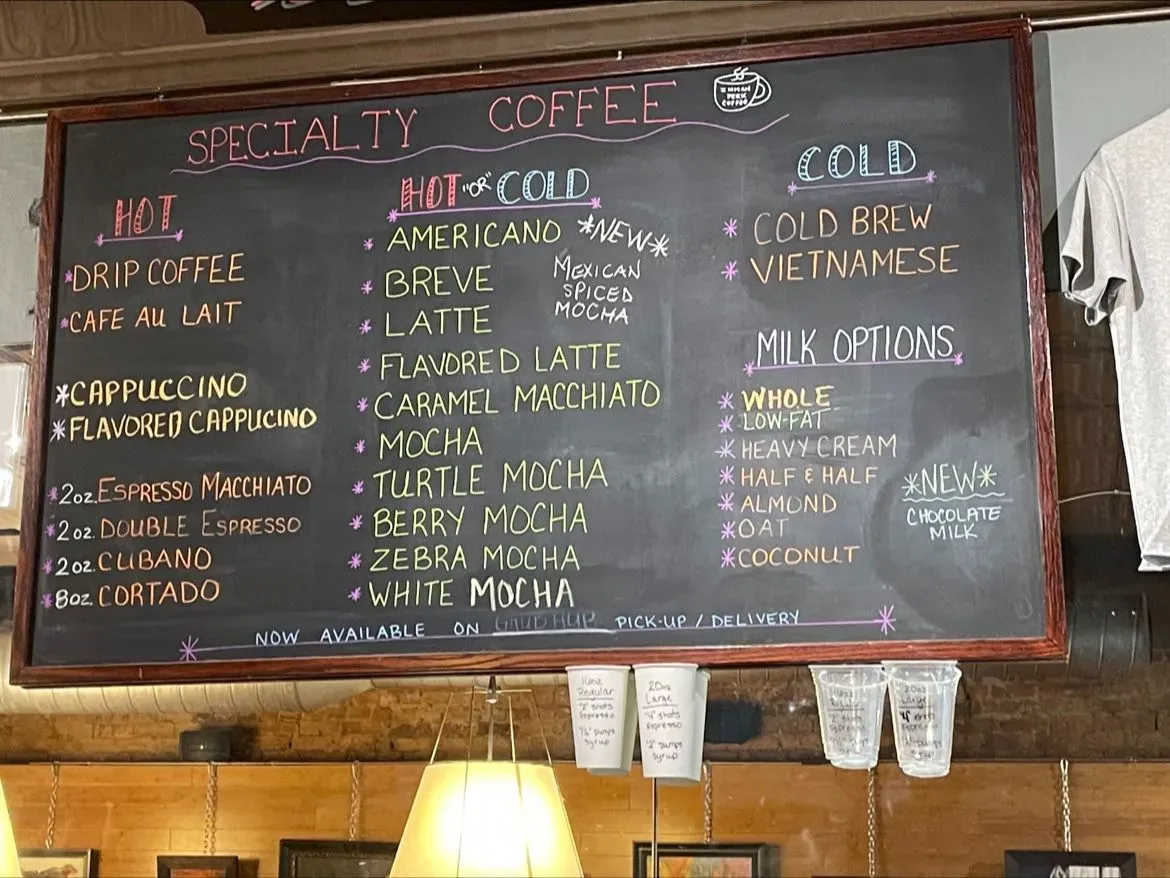 SPECIALTY COFFEE
INMAN
PERK
COFFEE
HOT
*DRIP COFFEE
*CAFE AU LAIT
*CAPPUCCINO
*FLAVORED CAPPUCINO
*2oz. ESPRESSO MACCHIATO
*2oz. DOUBLE ESPRESSO
*2oz. CUBANO
*8oz. CORTADO
HOT "OR" COLD
*AMERICANO
*BREVE
*LATTE
*FLAVORED LATTE
*CARAMEL MACCHIATO
*MOCHA
*TURTLE MOCHA
*BERRY MOCHA
*ZEBRA MOCHA
*WHITE MOCHA
*NEW*
MEXICAN
SPICED
MOCHA
COLD
*COLD BREW
*VIETNAMESE
MILK OPTIONS
*WHOLE
*LOW-FAT
*HEAVY CREAM
*HALF & HALF
*ALMOND
*OAT
*COCONUT
*NEW*
CHOCOLATE
MILK
NOW AVAILABLE ON PICK-UP / DELIVERY
16oz
Regular
"2" shots
Espresso
pumps
syrup
20oz
Large
"4" shots
Espresso
"2" pumps
syrup
16oz
Regular
"2" shots
Espresso
20oz
Large
"4" shots
Espresso
pumps
syrup